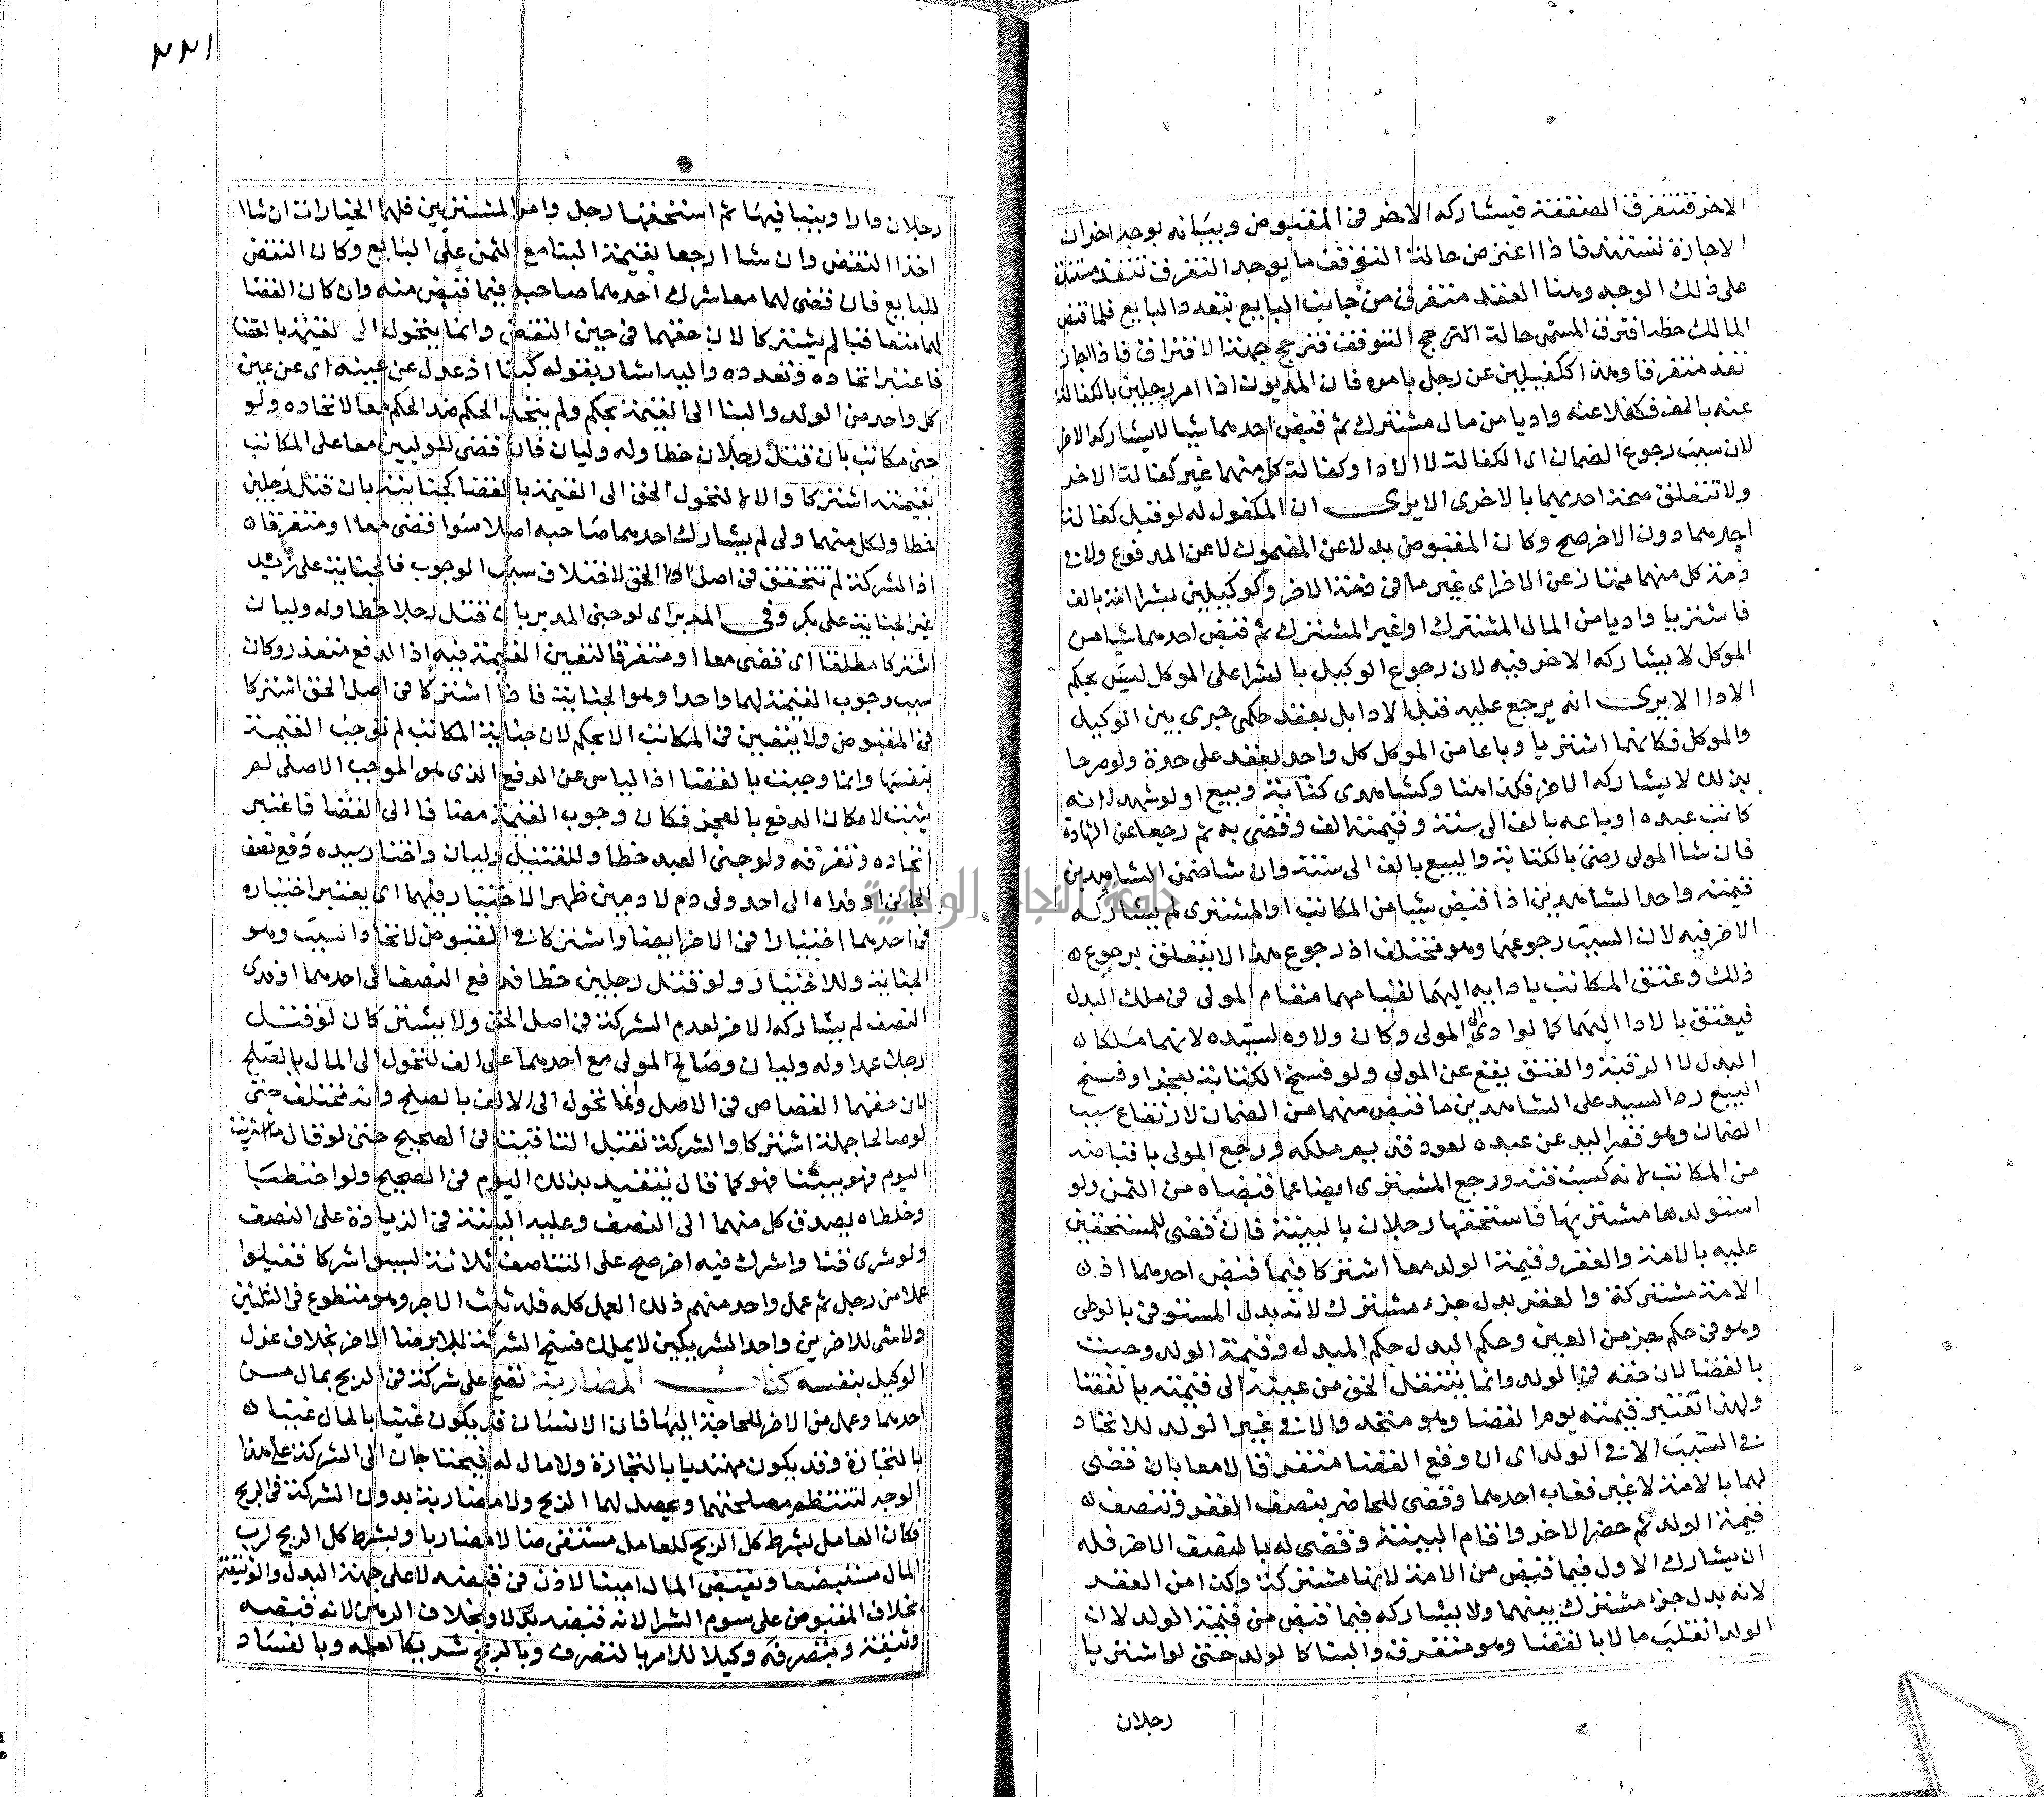 الاخر فتتفرق الصفقة فيشاركه الاخر فى المقبوض وبيانه يوجد اخران
الاجازة تستند فاذا اعتر من حالة التوقف ما يوجد التفرق تنفذ مستندة
على ذلك الوجه وهنا العقد متفرق من جانب البايع بتعدد البايع فلما قبض
المالك حظه افترق المستمى حالة الترجح التوقف فترجح جهة الافتراق فاذا اجاز
نفذ متفرقا وهذا ككفيلين عن رجل بامره فان المديون اذا امر رجلين بالكفالة
عنه بالف فكفلا عنه واديا من مال مشترك ثم قبض احدهما شيا لا يشاركه الاخر
لان سبب رجوع الضمان اى الكفالة لا الادا وكفالة كل منهما غير كفالة الاخر
ولا تتعلق صحة احديهما بالاخرى الايرى ان المكفول له لو قبل كفالة
احدهما دون الاخر صح وكان المقبوض بدلا عن المضمون لا عن المدفوع ولان
ذمة كل منهما ممتاز عن الاخر اى غير ما فى ذمة الاخر وكوكيلين بشرا امة بالف
فاشتريا واديا من المال المشترك او غير المشترك ثم قبض احدهما شيا من
الموكل لا يشاركه الاخر فيه لان رجوع الوكيل بالشرا على الموكل ليس بحكم
الادا الا يرى انه يرجع عليه قبل الادا بل بعقد حكمى جرى بين الوكيل
والموكل فكانهما اشتريا وباعا من الموكل كل واحد بعقد على حدة ولو صرحا
بذلك لا يشاركه الاخر فكذا هنا وكشاهدى كتابة وبيع اى لو شهدا انه
كاتب عبده او باعه بالف الى سنة وقيمته الف وقضى به ثم رجعا عن الشهادة
فان شا المولى رضى بالكتابة والبيع بالف الى سنة وان شا ضمن الشاهدين
قيمته واحد الشاهدين اذا قبض شيا من المكاتب او المشترى لم يشاركه
الاخر فيه لان السبب رجوعهما وهو مختلف اذ رجوع هذا لا يتعلق برجوع
ذلك وعتق المكاتب بادايه اليهما لقيامهما مقام المولى فى ملك البدل
فيعتق بالادا اليهما كما لو ادى الى المولى وكان ولاوه لسيده لانهما ملكا
البدل لا الرقبة والعتق يقع عن المولى ولو فسخ الكتابة بعجز او فسخ
البيع رد السيد على الشاهدين ما قبض منهما من الضمان لارتفاع سبب
الضمان وهو قصر اليد عن عبده لعود قديم ملكه ورجع المولى بما قبضاه
من المكاتب لانه كسب قنه ورجع المشترى ايضا عما قبضاه من الثمن ولو
استولدها مشتريها فاستحقها رجلان بالبينة فان قضى للمستحقين
عليه بالامة والعقر وقيمة الولد معا اشتركا فيما قبض احدهما اذ
الامة مشتركة والعقر بدل جزء مشترك لانه بدل المستوفى بالوطى
وهو فى حكم جز من العين وحكم البدل حكم المبدل وقيمة الولد وجبت
بالقضا لان حقه فى الولد وانما ينتقل الحق من عينه الى قيمته بالقضا
ولهذا تعتبر قيمته يوم القضا وهو متحد والا فى غير الولد للاتحاد
فى السبب الا فى الولد اى ان وقع القضا متفرقا لا معا بان قضى
لهما بالامة لا غير فغاب احدهما وقضى للحاضر بنصف العقر ونصف
قيمة الولد ثم حضر الاخر واقام البينة وقضى له بالنصف الاخر فله
ان يشارك الاول فيما قبض من الامة لانها مشتركة وكذا من العقد
لانه بدل جزء مشترك بينهما ولا يشاركه فيما قبض من قيمة الولد لان
الولد انقلب مالا بالقضا وهو متفرق والبنا كالولد حتى لو اشتريا
رجلان
٢٢١
رجلان دارا وبنيا فيها ثم استحقها رجل وامر المشتريين فلهما الخيار ان شاا
اخذا النقض وان شاا رجعا بقيمة البنا مع الثمن على البايع وكان النقض
للبايع فان قضى لهما معا شرك احدهما صاحبه فيما قبض منه وان كان القضا
لهما متعاقبا لم يشتركا لان حقهما فى حين النقض وانما يتحول الى القيمة بالقضا
فاعتبر اتحاده وتعدده واليه اشار بقوله كبنا اذ عدل عن عينه اى عن عين
كل واحد من الولد والبنا الى القيمة بحكم ولم يتحد الحكم ضد الحكم معا لاتحاده ولو
جنى مكاتب بان قتل رجلان خطا وله وليان فان قضى للموليين معا على المكاتب
بقيمته اشتركا والا لا لتحول الحق الى القيمة بالقضا كجنايته بان قتل رجلين
خطا ولكل منهما ولى لم يشارك احدهما صاحبه اصلا سوا قضى معا او متفرقا
اذ الشركة لم تتحقق فى اصل الحق لاختلاف سبب الوجوب فالجناية على زيد
غير الجناية على بكر وفى المدبر اى لو جنى المدبر بان قتل رجلا خطا وله وليان
اشتركا مطلقا اى قضى معا او متفرقا لتعين القيمة فيه اذ الدفع متعذر وكان
سبب وجوب القيمة لهما واحدا وهو الجناية فاذا اشتركا فى اصل الحق اشتركا
فى المقبوض ولا يتعين فى المكاتب الا بحكم لان جناية المكاتب لم توجب القيمة
بنفسها وانما وجبت بالقضا اذ الياس عن الدفع الذى هو الموجب الاصلى لم
يثبت لامكان الدفع بالعجز فكان وجوب القيمة مضافا الى القضا فاعتبر
اتحاده وتفرقه ولو جنى العبد خطا وللقتيل وليان واختار سيده دفع نصف
الجانى او فداه الى احد ولى دم لادمين ظهر الاختيار فيهما اى يعتبر اختياره
فى احدهما اختيارا فى الاخر ايضا واشتركا فى المقبوض لاتحاد السبب وهو
الجناية وللاختيار ولو قتل رجلين خطا فدفع النصف الى احدهما او فدى
النصف لم يشاركه الاخر لعدم الشركة فى اصل الحق ولا يشتركان لو قتل
رجلا عمدا وله وليان وصالح المولى مع احدهما على الف لتحول الى المال بالصلح
لان حقهما القصاص فى الاصل وانما تحول الى الالف بالصلح وانه مختلف حتى
لو صالحا جملة اشتركا والشركة تقبل التاقيت فى الصحيح حتى لو قال ما اشتريت
اليوم فهو بيننا فهو كما قال يتقيد بذلك اليوم فى الصحيح ولو اختطبا
وخلطاه يصدق كل منهما الى النصف وعليه البينة فى الزيادة على النصف
ولو شرى قنا واشرك فيه اخر صح على التناصف ثلاثة ليسوا شركا فقبلوا
عملا من رجل ثم عمل واحد منهم ذلك العمل كله فله ثلث الاجر وهو متطوع فى الثلثين
ولا شى للاخرين واحد الشريكين لا يملك فسخ الشركة بلا رضا الاخر بخلاف عزل
الوكيل بنفسه كتاب المضاربة تقع على شركة فى الربح بمال من
احدهما وعمل من الاخر للحاجة اليها فان الانسان قد يكون غنيا بالمال غبيا
بالتجارة وقد يكون مهتديا بالتجارة ولا مال له فيحتاجان الى الشركة على هذا
الوجه لتنتظم مصلحتهما ويحصل لهما الربح ولا مضاربة بدون الشركة فى الربح
فكان العامل بشرط كل الربح للعامل مستقرضا لا مضاربا وبشرط كل الربح لرب
المال مستبضعا وبقبض المال امينا لاذن فى قبضه لا على جهة البدل والوثيقة
بخلاف المقبوض على سوم الشرا لانه قبضه بدلا وبخلاف الرهن لانه قبضه
وثيقة وبتصرفه وكيلا للامر بالتصرف وبالربح شريكا لعمله وبالفساد